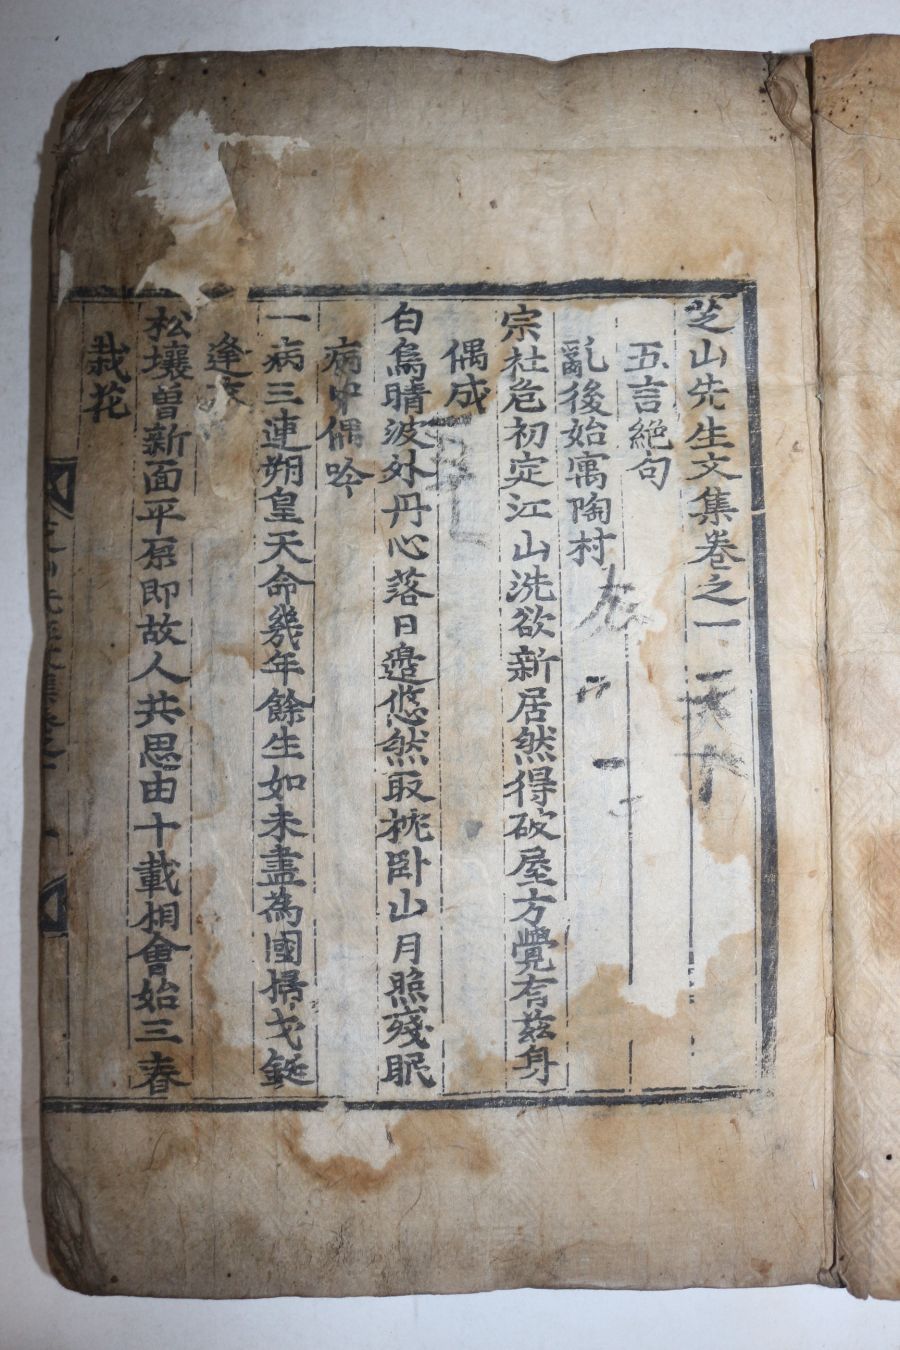 芝山先生文集卷之一
五言絶句
亂後始寓陶村
宗社危初定江山洗欲新居然得破屋方覺有茲身
偶成
白鳥晴波外丹心落日邊悠然取枕卧山月照殘眠
病中偶吟
一病三連朔皇天命幾年餘生如未盡為國掃戈鋋
逢
松壤曾新面平原即故人共思由十載相會始三春
栽花